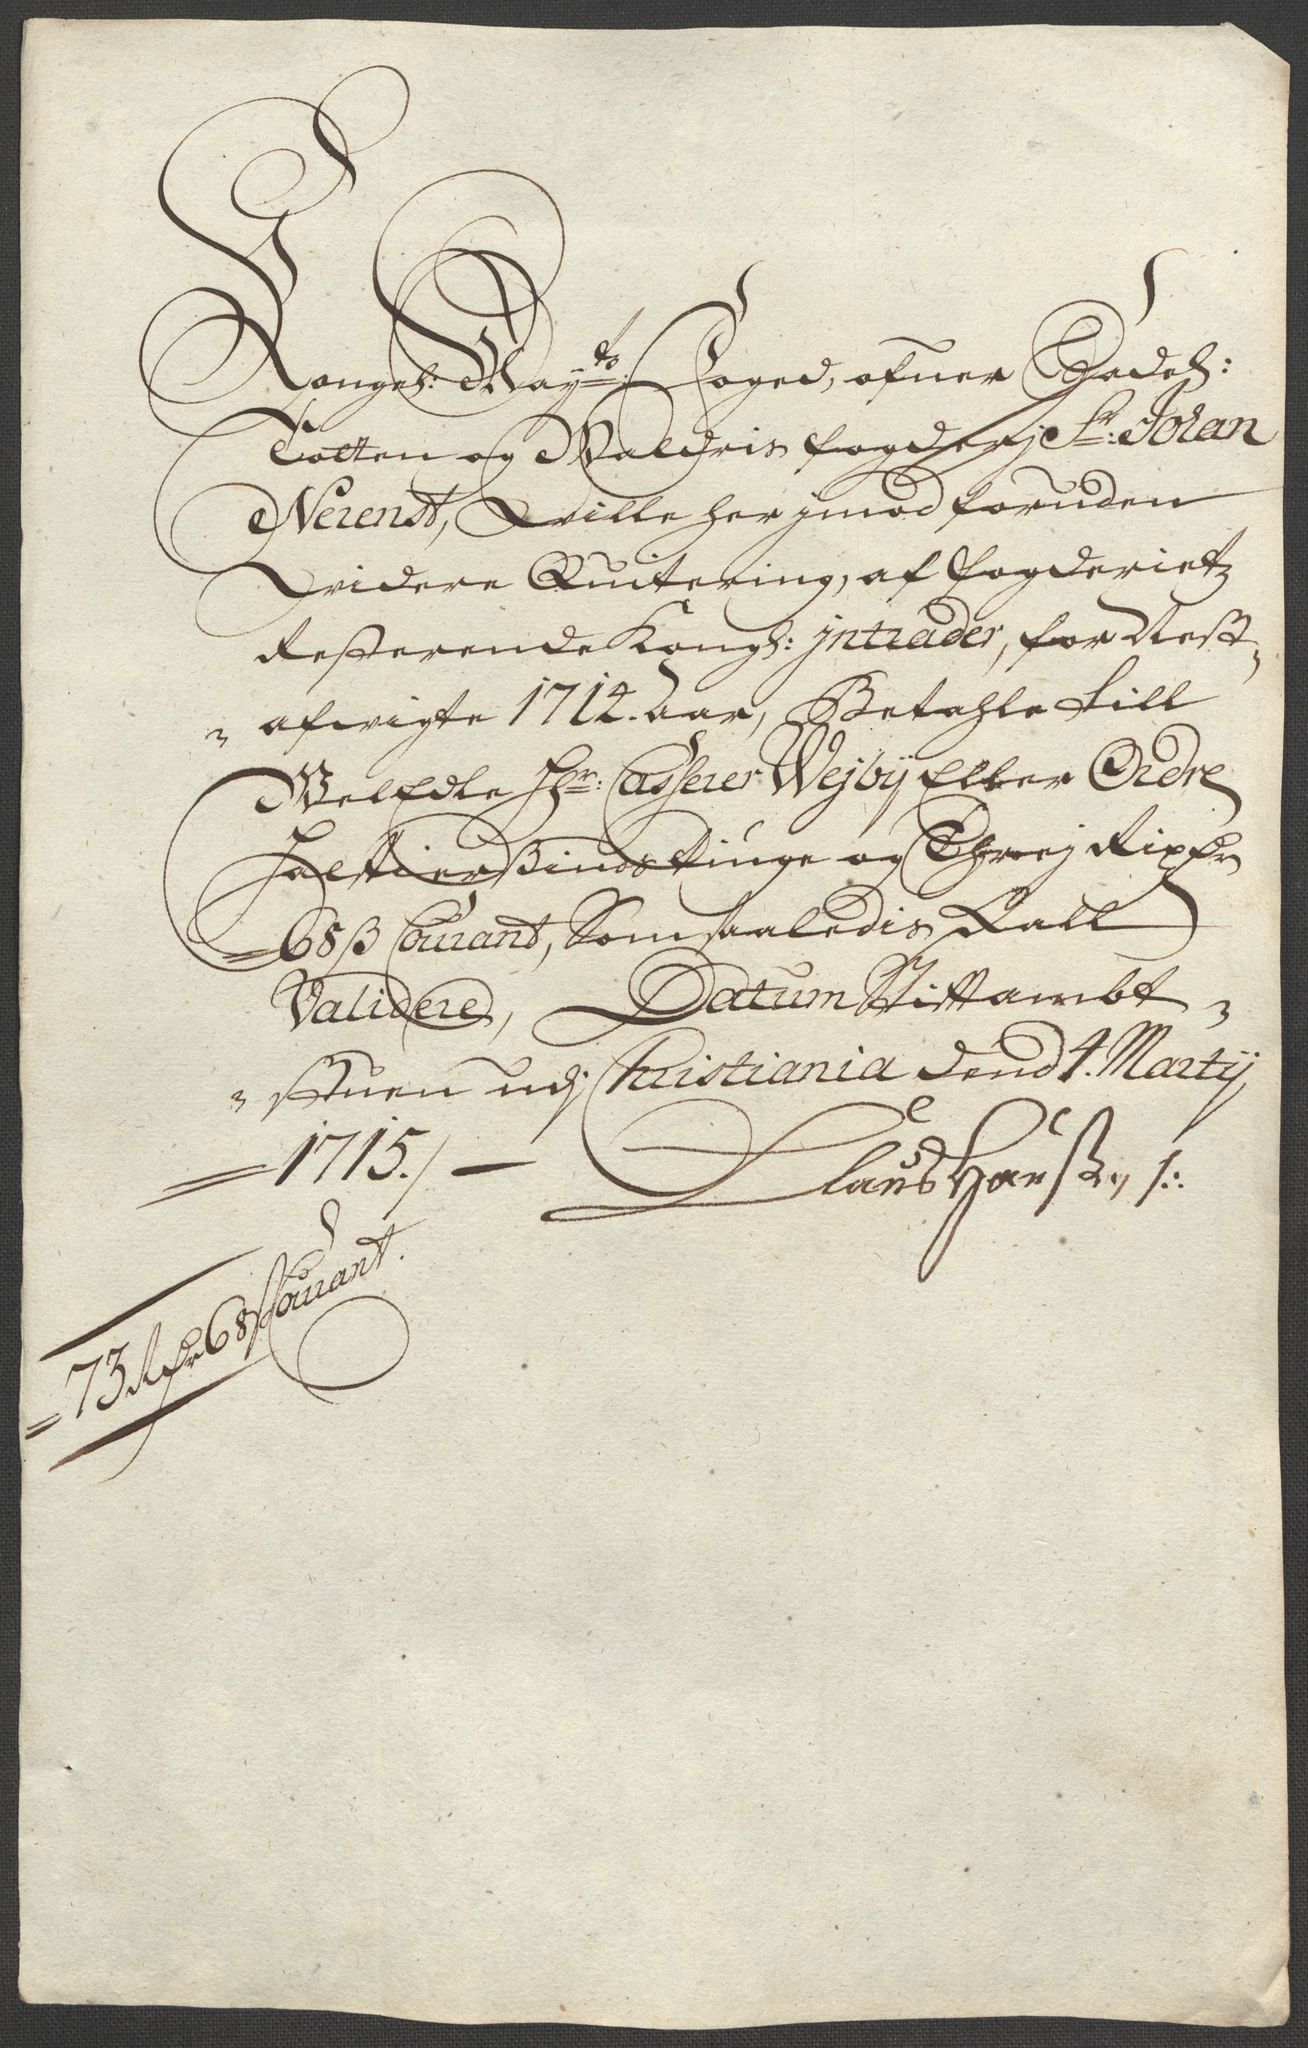 Kongel: Mayts Foged, ofuer Hadel:
Totten og Waldris fogderj Sr: Johan
Nerenst, Wille her jmod foruden
widere Quitering, af fogderietz
Resterende Kongl: jntrader, for Nest-
afwigte 1714. aar, Betahle till
WelEdle Hr: Casserer Wejby Eller Ordre
Halftierdsindstiuge og Threj Rixdr
68 ß Courant, Som saaledis skall
Validere, Datum Stiftambt-
stuen udj Christiania dend 4. Martij
1715./
Claus Hansen
73 Rdr 68 ß Courant.